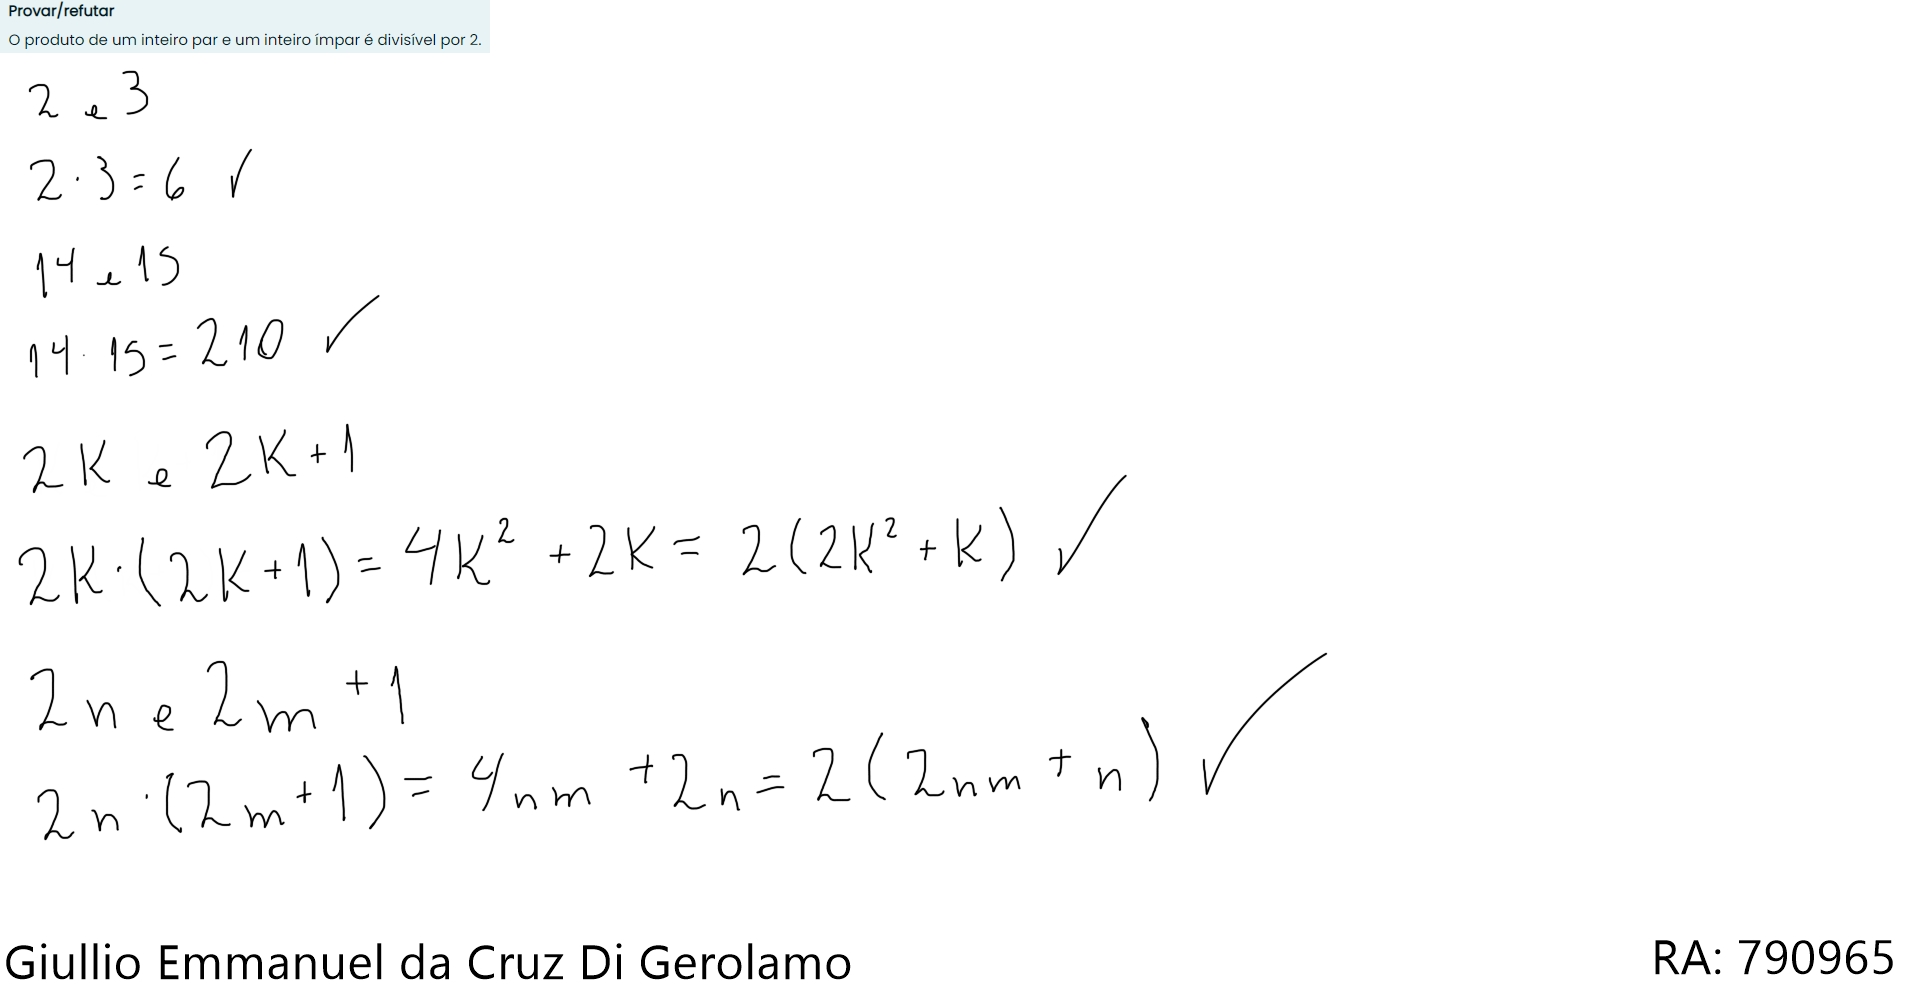 Provar/refutar
O produto de um inteiro par e um inteiro ímpar é divisível por 2.
2 e 3
2 · 3 = 6 ✓
14 e 15
14 · 15 = 210 ✓
2K e 2K + 1
2K · (2K + 1) = 4K² + 2K = 2(2K² + K) ✓
2n e 2m + 1
2n · (2m + 1) = 4nm + 2n = 2(2nm + n) ✓
Giullio Emmanuel da Cruz Di Gerolamo
RA: 790965